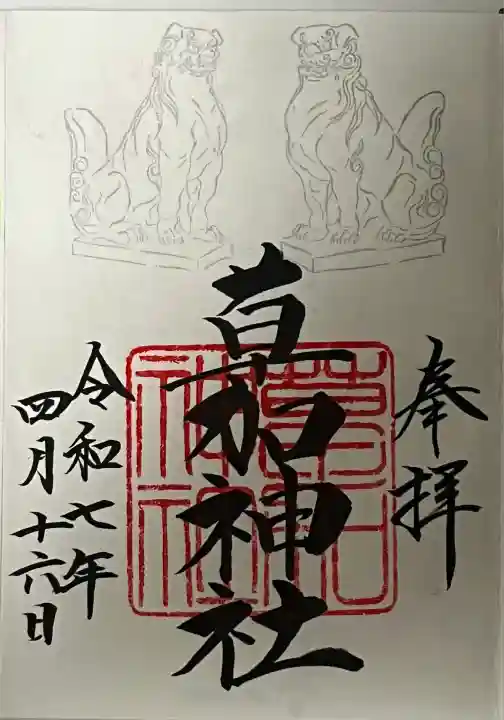 奉拝
草加神社
令和七年
四月十六日